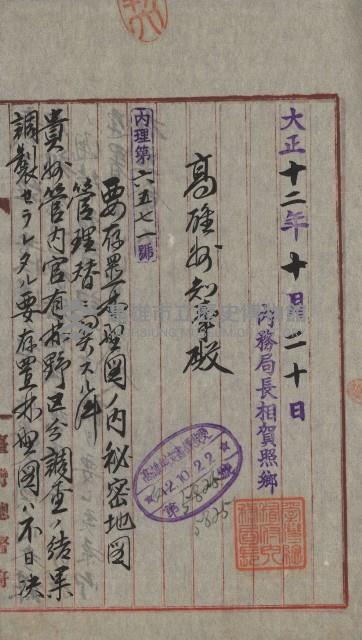 大正十二年十月二十日
內務局長相賀照鄉
高雄州知事殿
內理第六五七一號
要存置林野図ノ內秘密地図
管理替ニ関スル件
貴州管內官有林野区分調査ノ結果
調製セラレタル要存置林野図ハ不日決
12.10.22
5825
臺灣總督府